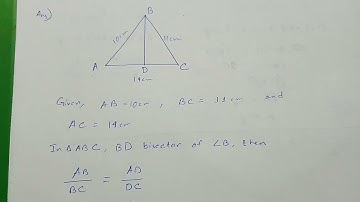 Ans)
B
10cm 11cm
A D C
14cm
Given, AB = 10cm, BC = 11cm and
AC = 14cm
In ΔABC, BD bisector of ∠B, then
AB/BC = AD/DC